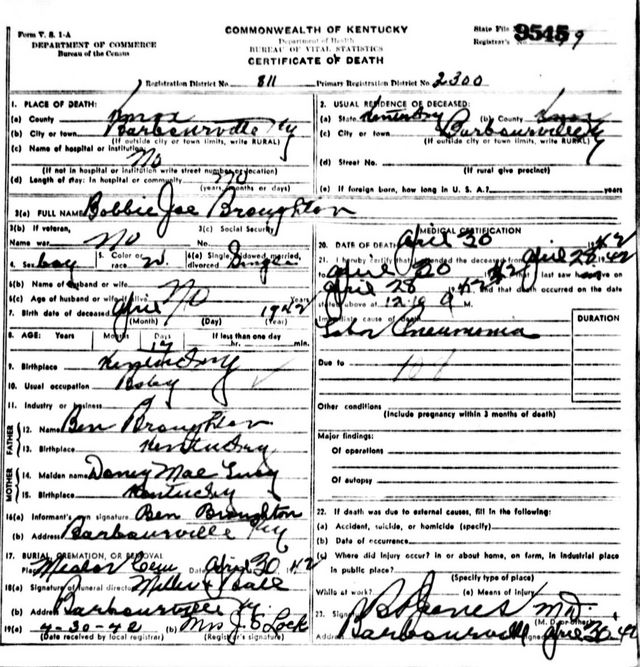 Form V. S. 1-A
DEPARTMENT OF COMMERCE
Bureau of the Census
COMMONWEALTH OF KENTUCKY
Department of Health
BUREAU OF VITAL STATISTICS
CERTIFICATE OF DEATH
State File 9545
Registrar's No. 99
Registration District No. 811 Primary Registration District No. 2300
1. PLACE OF DEATH:
(a) County Knox
(b) City or town Barbourville Ky
(If outside city or town limits, write RURAL)
(c) Name of hospital or institution
No
(If not in hospital or institution write street number or location)
(d) Length of stay: In hospital or community
(years, months or days)
2. USUAL RESIDENCE OF DECEASED:
(a) State Kentucky (b) County Knox
(c) City or town Barbourville Ky
(If outside city or town limits, write RURAL)
(d) Street No.
(If rural give precinct)
(e) If foreign born, how long in U. S. A.? years
3(a) FULL NAME Bobbie Joe Broughton
3(b) If veteran, 3(c) Social Security
Name war No No.
4. Sex boy 5. Color or race W. 6(a) Single, widowed, married, divorced Single
6(b) Name of husband or wife
6(c) Age of husband or wife if alive No Years
7. Birth date of deceased April 1942
(Month) (Day) (Year)
8. AGE: Years Months Days If less than one day
17 hr. min.
9. Birthplace Kentucky
10. Usual occupation Baby
11. Industry or business
FATHER
12. Name Ben Broughton
13. Birthplace Kentucky
MOTHER
14. Maiden name Mae
15. Birthplace Kentucky
16(a) Informant's own signature Ben Broughton
(b) Address Barbourville Ky
17. BURIAL, CREMATION, OR REMOVAL
Place Cem Date April 30 1942
18(a) Signature of funeral director Miller & Hall
(b) Address Barbourville Ky.
19(a) 4-30-42 (b) Mrs J. E Lock
(Date received by local registrar) (Registrar's signature)
MEDICAL CERTIFICATION
20. DATE OF DEATH April 30 1942
21. I hereby certify that I attended the deceased from April 28, 42
April 30 1942 that I last saw alive on
April 28 1942 and that death occurred on the date
stated above at 12 M.
Immediate cause of death
Lobar Pneumonia
DURATION
Due to
Other conditions
(Include pregnancy within 3 months of death)
Major findings:
Of operations
Of autopsy
22. If death was due to external causes, fill in the following:
(a) Accident, suicide, or homicide (specify)
(b) Date of occurrence
(c) Where did injury occur? in or about home, on farm, in industrial place
in public place?
(Specify type of place)
While at work? (e) Means of injury
23. Signed B Jones M.D.
(M. D. or other)
Address Barbourville April 30, 42